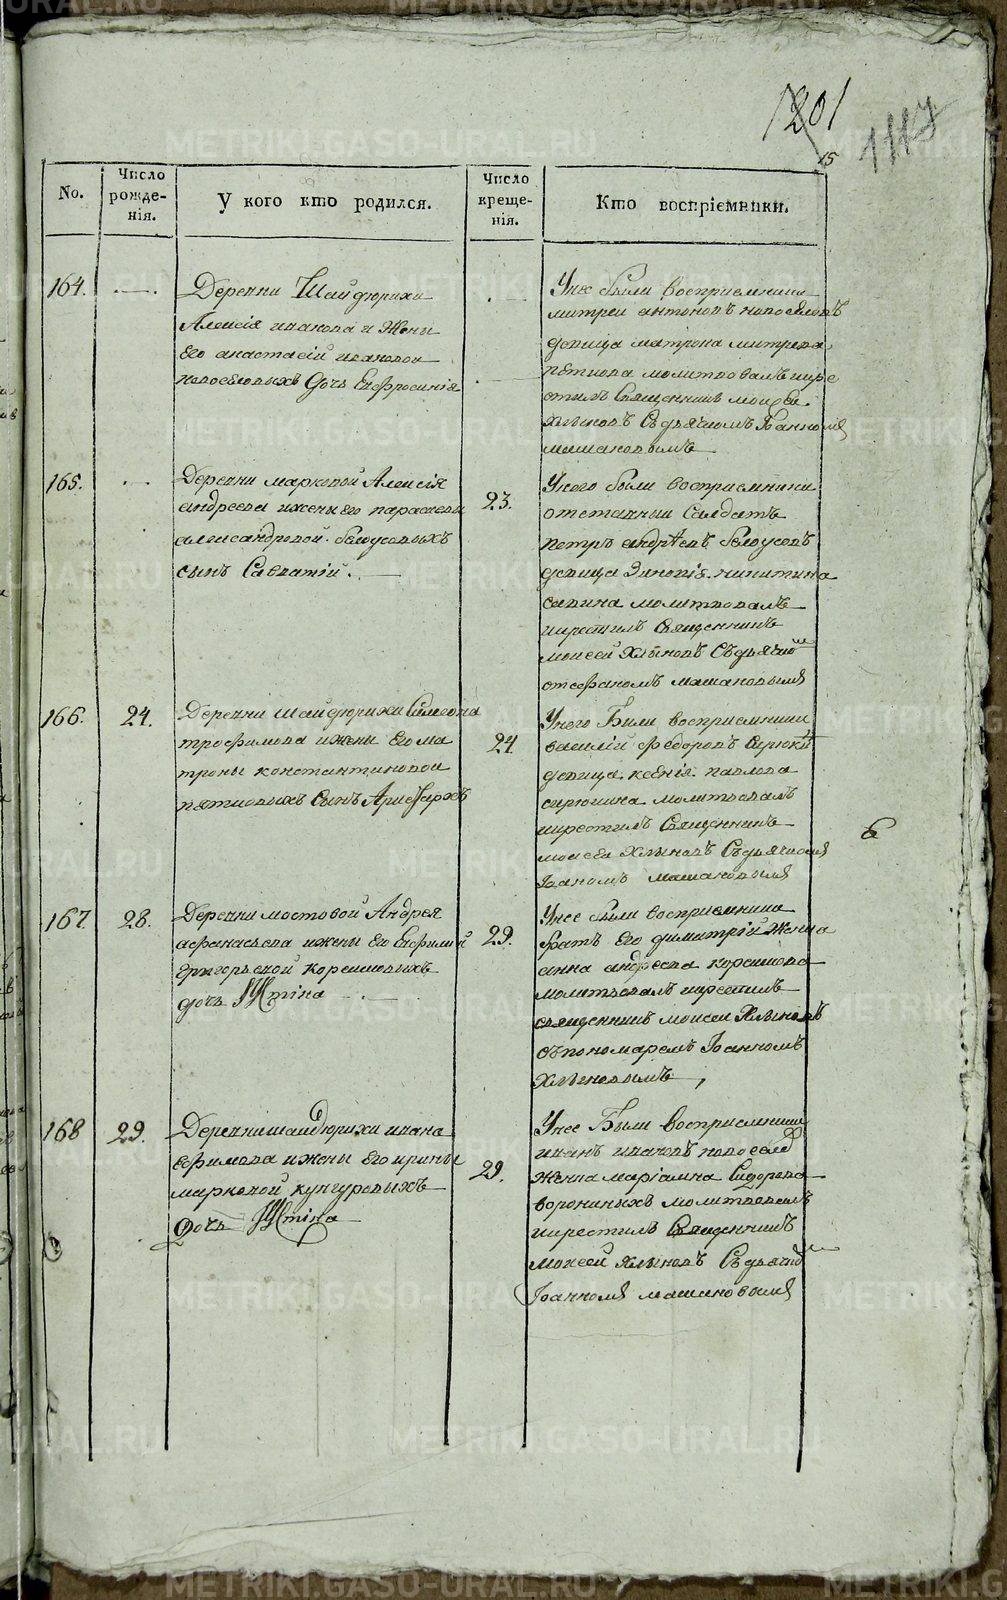 1201
1117
15
No.
Число рожде-нія.
У кого кто родился.
Число креще-нія.
Кто воспріємники.
164.
Деревни Шайдюрихи
Алексія иванова и жены
Его анастасій ивановои
новоселовыхъ дочь Евфросинія
Унее были восприемники
митреи антоновъ новоселовъ
девица матрона митрева
пяткова молитвовалъ икре
стилъ Священникъ моисеи
хлыновъ Съдьячкомъ Іоанномъ
машановымъ
165.
Деревни марковой Алексія
андреева ижены его параскевы
александровой белоусовыхъ
сынъ Савватій.
23.
Унего были восприемники
отставныи Салдатъ
петръ андрѣевъ белоусовъ
девица Зиновія никитина
савина молитвовалъ
икрестилъ Священникъ
моисеи хлыновъ Съдьячко
стефаномъ машановымъ
166.
24.
Деревни шайдюрихи Симеона
трофимова ижены Его ма
троны константиновои
пятковыхъ Сынъ Аристархъ
24
Унего Были восприемники
василій федоровъ Сирюки
девица ксенія павлова
сирюкина молитвовалъ
икрестилъ Священникъ
моисеи Хлыновъ Съдьячкомъ
Іоаномъ машановымъ
6
167.
28.
Деревни мостовой Андрея
афанасьева ижены Его Евфиміи
григорьевой корешковыхъ
дочь Устіна
29.
Унее были восприемники
братъ Его димитрій Женка
анна андреева корешкова
молитвовалъ икрестилъ
священникъ моисеи Хлыновъ
съпономаремъ Іоанномъ
Хлыновымъ,
168
29.
Деревнишайдюрихи ивана
ефимова ижены Его ирины
марковой кунгуровыхъ
Дочь Устіна
29.
Унее Были восприемники
иванъ ивановъ новоселов
женка маріамна Сидорова
ворониныхъ молитвовалъ
икрестилъ Священникъ
моисеи хлыновъ Съдьячко
Іоанномъ машановымъ
METRIKI.GASO-URAL.RU